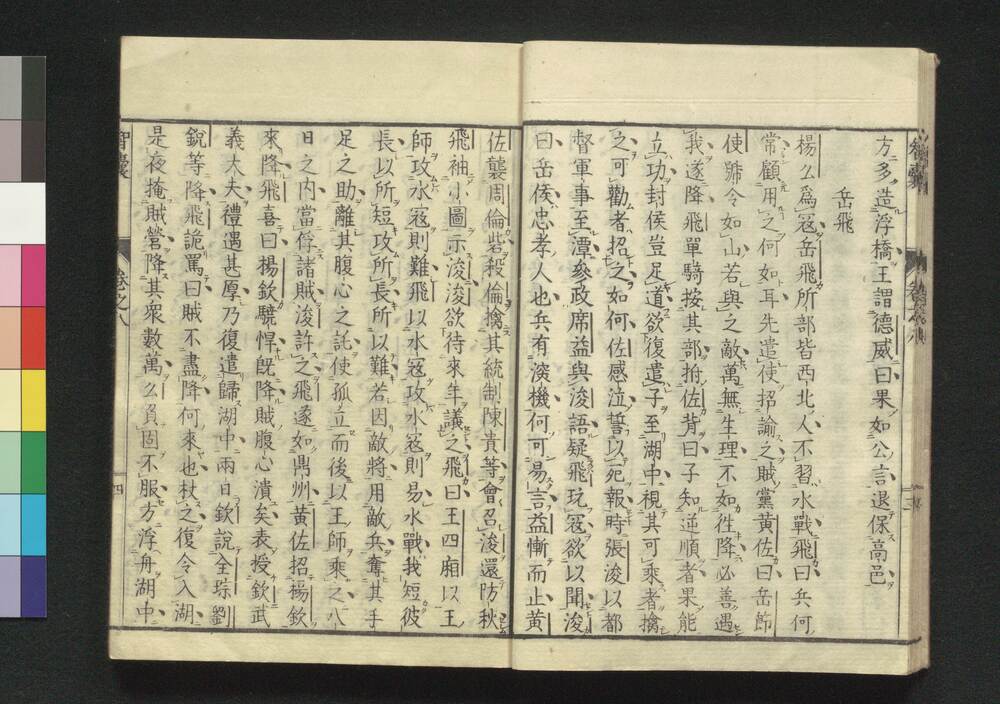 方多造浮橋王謂德威曰果如公言退保高邑
岳飛
楊么爲冦岳飛所部皆西北人不習水戰飛曰兵何
常顧用之何如耳先遣使招諭之賊黨黃佐曰岳節
使號令如山若與之敵萬無生理不如徃降必善遇
我遂降飛單騎按其部拊佐背曰子知逆順者果能
立功封侯豈足道欲復遣子至湖中視其可乘者擒
之可勸者招之如何佐感泣誓以死報時張浚以都
督軍事至潭參政席益與浚語疑飛玩冦欲以聞浚
曰岳侯忠孝人也兵有深機何可易言益慚而止黃
佐襲周倫砦殺倫擒其統制陳貴等會召浚還防秋
飛袖小圖示浚浚欲待來年議之飛曰王四廂以王
師攻水冦則難飛以水冦攻水冦則易水戰我短彼
長以所短攻所長所以難若因敵將用敵兵奪其手
足之助離其腹心之託使孤立而後以王師乘之八
日之內當俘諸賊浚許之飛遂如鼎州黃佐招楊欽
來降飛喜曰楊欽驍悍既降賊腹心潰矣表授欽武
義大夫禮遇甚厚乃復遣歸湖中兩日欽說全琮劉
銳等降飛詭罵曰賊不盡降何來也杖之復令入湖
是夜掩賊營降其衆數萬么負固不服方浮舟湖中
智囊
卷之八
四